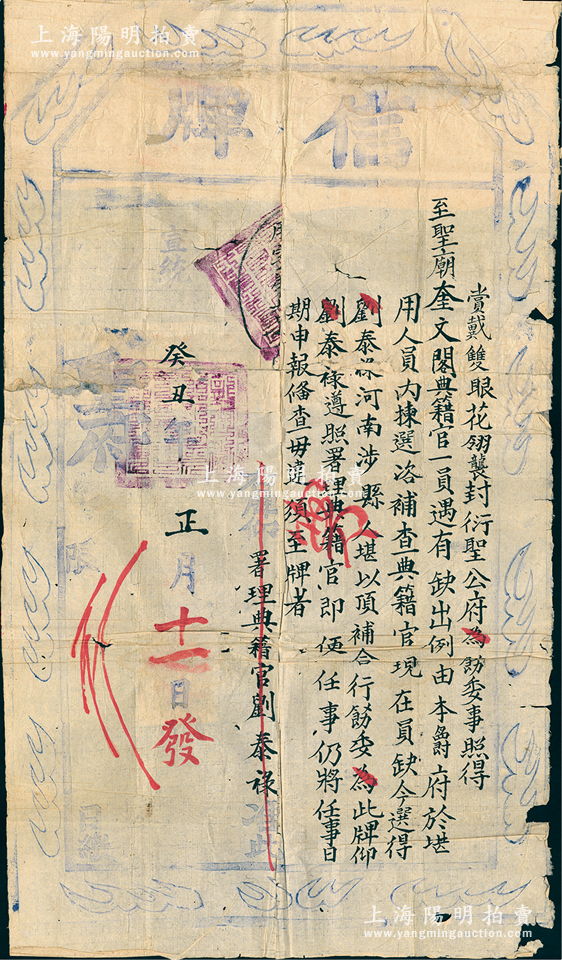 上海陽明拍賣
www.yangmingauction.com
信牌
賞戴雙眼花翎襲封衍聖公府為飭委事照得
至聖廟奎文閣典籍官一員遇有缺出例由本爵府於堪
用人員內揀選咨補查典籍官現在員缺今選得
劉泰祿河南涉縣人堪以頂補合行飭委為此牌仰
劉泰祿遵照署理典籍官即便任事仍將任事日
期申報備查毋違須至牌者
署理典籍官劉泰祿
准此
宣統
癸丑年正月十一日發
限
日繳
上海陽明拍賣
www.yangmingauction.com
上海陽明拍賣
www.yangmingauction.com